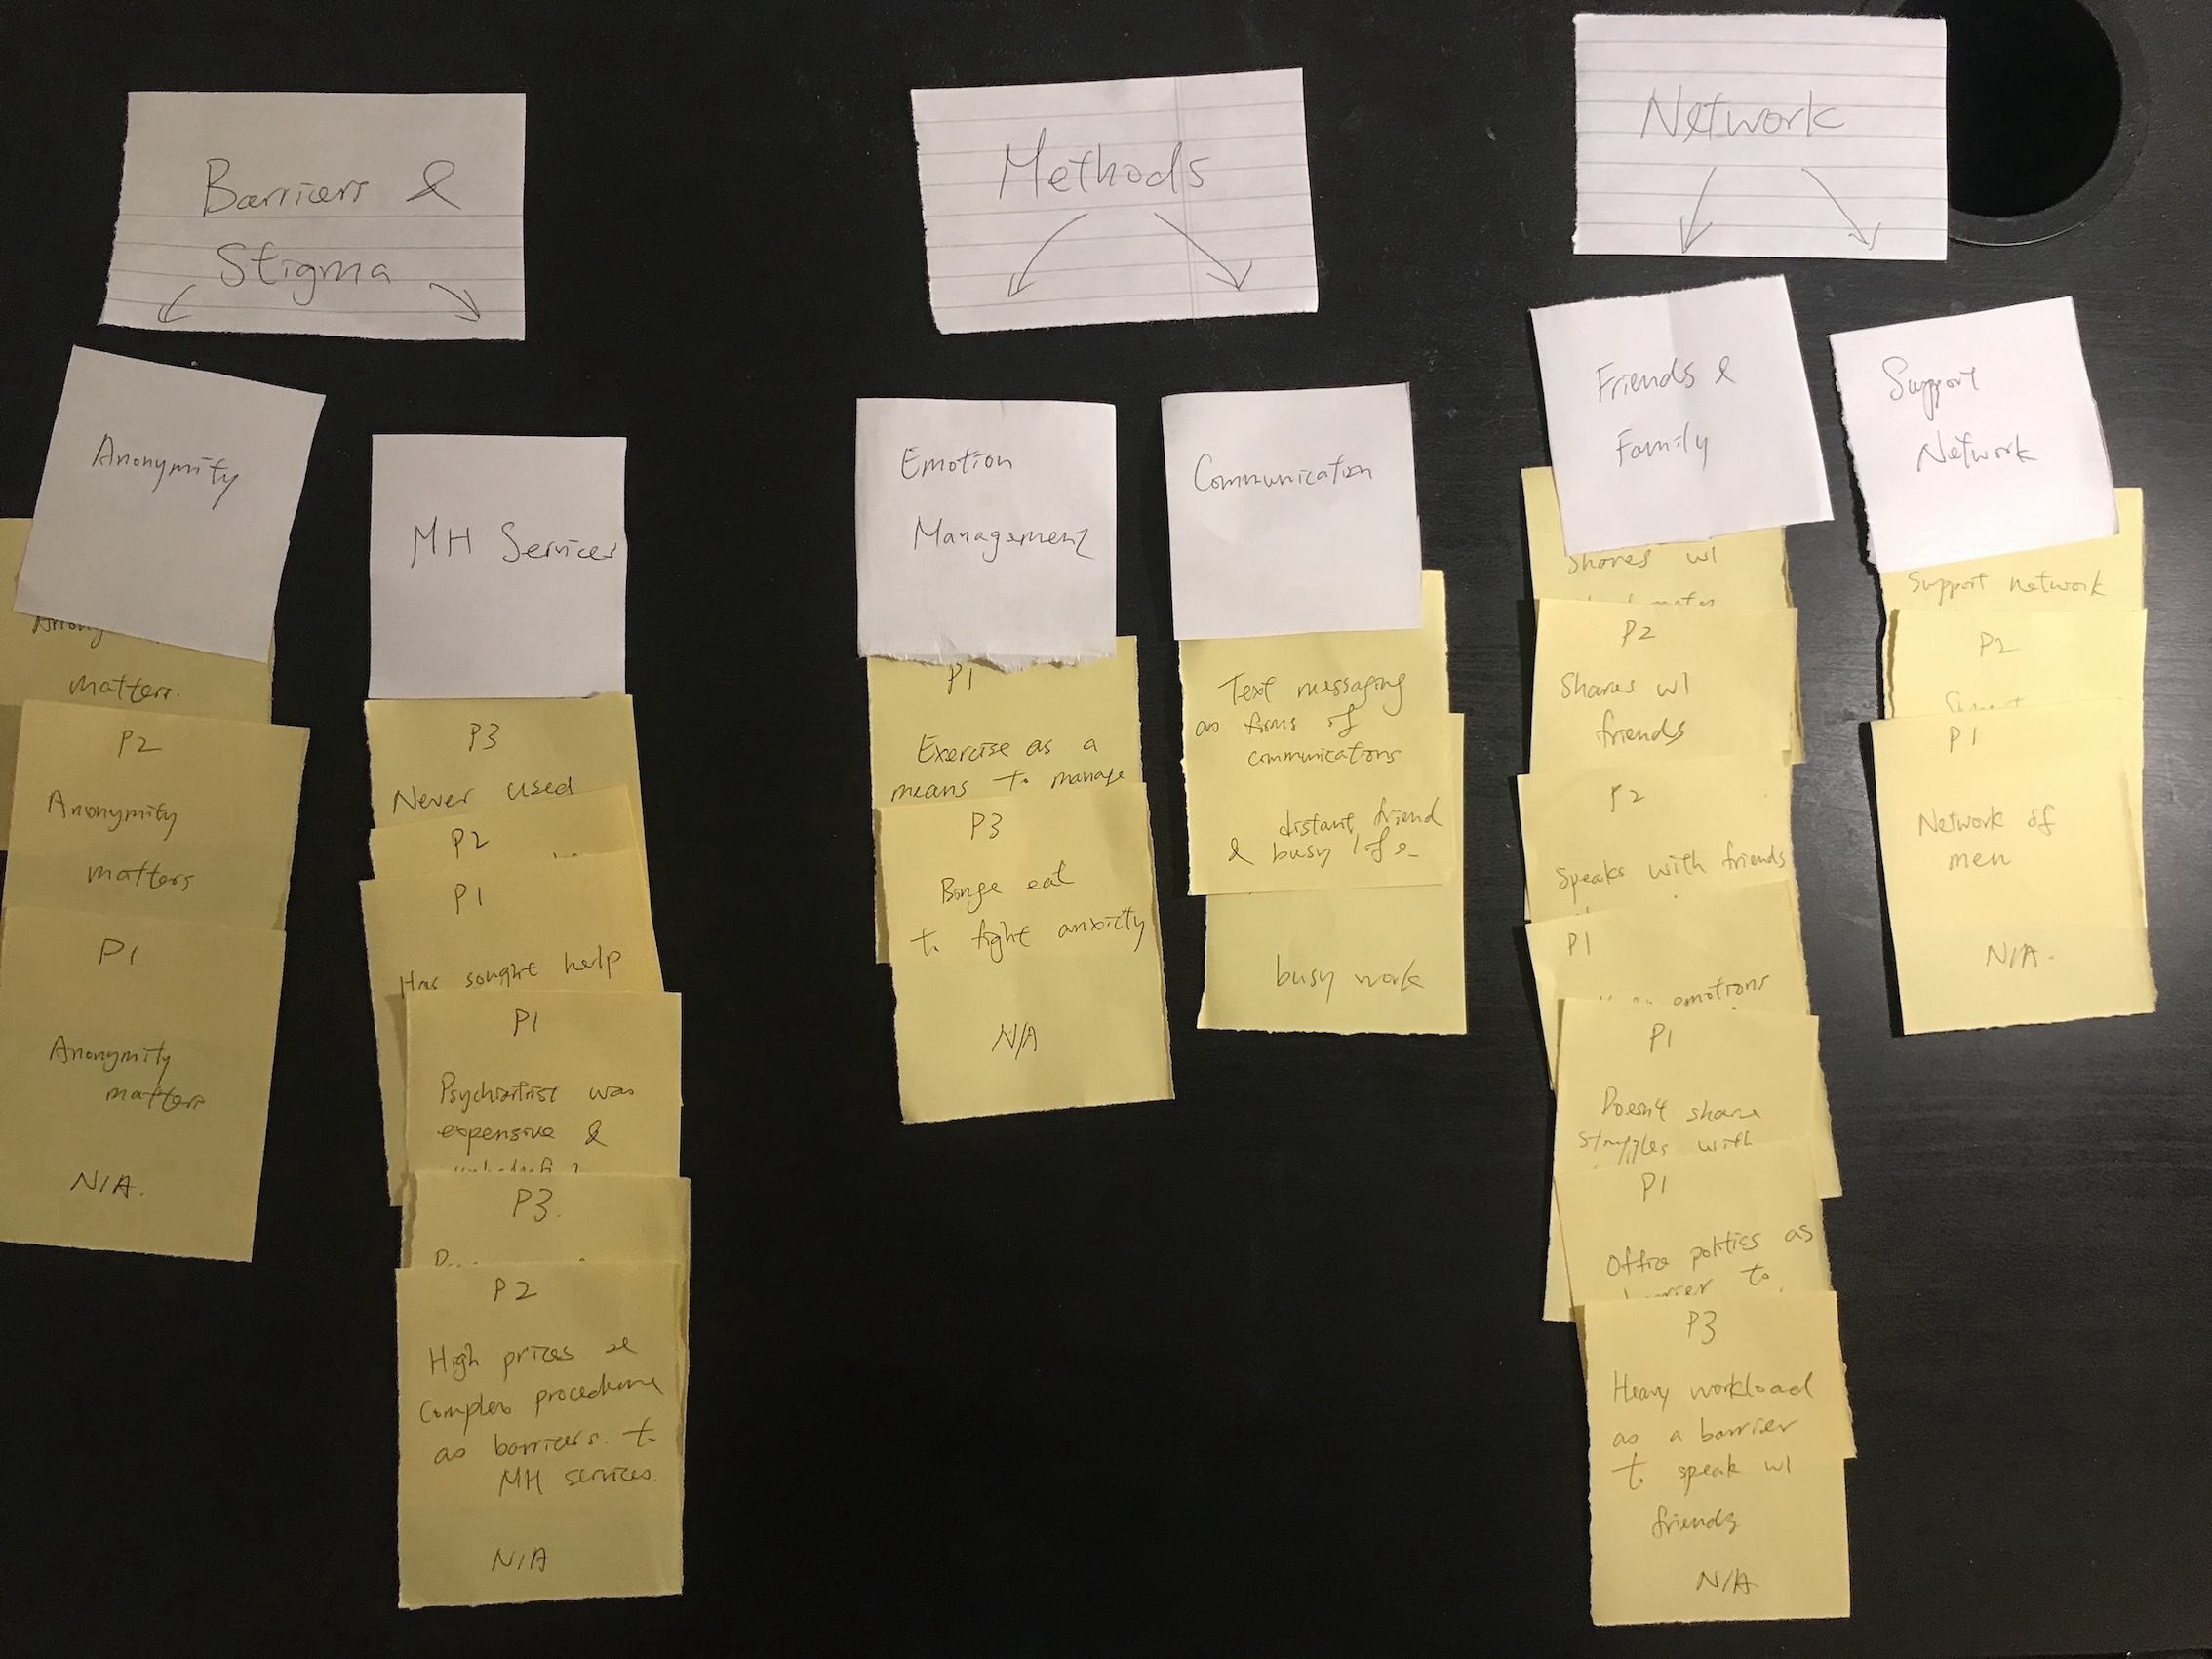 Barriers &
Stigma
Anonymity
matters.
P2
Anonymity
matters
P1
Anonymity
matters
N/A.
MH Services
P3
Never used
P2
P1
Has sought help
P1
Psychiatrist was
expensive &
P3.
P2
High prices &
Complex procedure
as barriers to
MH services.
N/A
Methods
Emotion
Management
P1
Exercise as a
means to manage
P3
Binge eat
to fight anxiety
N/A
Communication
Text messaging
as forms of
communications
distant friend
& busy life
busy work
Network
Friends &
Family
Shares w/
P2
Shares w/
friends
P2
Speaks with friends
P1
emotions
P1
Doesn't share
struggles with
P1
Office politics as
barrier to
P3
Heavy workload
as a barrier
to speak w/
friends
N/A
Support
Network
Support network
P2
P1
Network of
men
N/A.